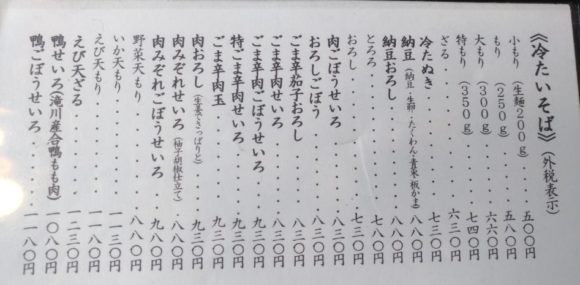 《冷たいそば》(外税表示)
小もり(生麺200g)・・・五〇〇円
もり(250g)・・・・・五八〇円
大もり(300g)・・・・六六〇円
特もり(350g)・・・・七四〇円
ざる・・・・・・・・六三〇円
冷たぬき・・・・・・七三〇円
納豆(納豆・生卵・たくわん・青菜・板かま)・八八〇円
納豆おろし・・・・・八八〇円
とろろ・・・・・・・七八〇円
おろし・・・・・・・七三〇円
肉ごぼうせいろ・・・八三〇円
おろしごぼう・・・・八三〇円
ごま辛茄子おろし・・八三〇円
ごま辛肉せいろ・・・八三〇円
ごま辛肉ごぼうせいろ・九三〇円
特ごま辛肉せいろ・・九三〇円
ごま辛肉玉・・・・・九三〇円
肉おろし(生姜でさっぱりと)・・九三〇円
肉みぞれせいろ(柚子胡椒仕立て)・八八〇円
肉みぞれごぼうせいろ・九八〇円
野菜天もり・・・・・八八〇円
いか天もり・・・・一一三〇円
えび天もり・・・・一一八〇円
えび天ざる・・・・一二三〇円
鴨せいろ(滝川産合鴨もも肉)一〇八〇円
鴨ごぼうせいろ・・・一一八〇円